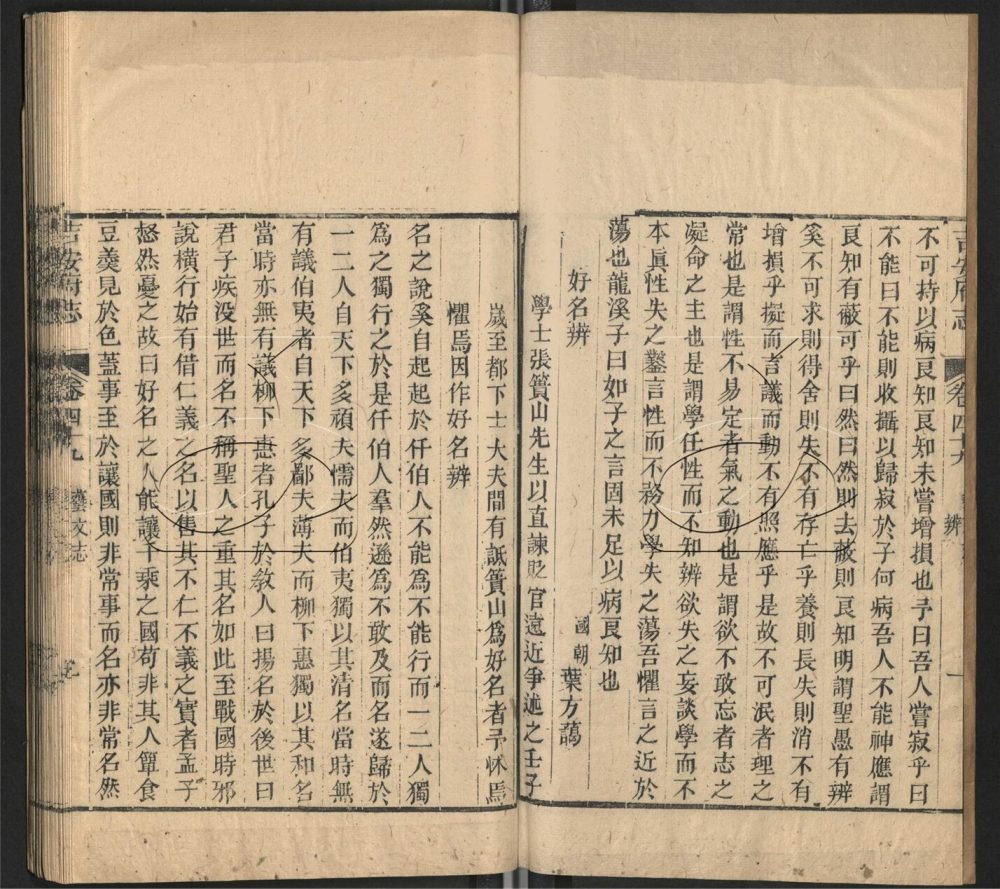 吉安府志 卷四十九 辨 一
不可持以病良知良知未嘗增損也予曰吾人嘗寂乎曰
不能曰不能則收攝以歸寂於子何病吾人不能神應謂
良知有蔽可乎曰然曰然則去蔽則良知明謂聖愚有辨
奚不可求則得舍則失不有存亡乎養則長失則消不有
增損乎擬而言議而動不有照應乎是故不可泯者理之
常也是謂性不易定者氣之動也是謂欲不敢忘者志之
凝命之主也是謂學任性而不知辨欲失之妄談學而不
本眞性失之鑿言性而不務力學失之蕩吾懼言之近於
蕩也龍溪子曰如子之言因未足以病良知也
好名辨
國朝 葉方藹
學士張簣山先生以直諫貶官遠近爭述之壬子
歲至都下士大夫間有詆簣山爲好名者予怵焉
懼焉因作好名辨
名之說奚自起起於仟伯人不能為不能行而一二人獨
為之獨行之於是仟伯人羣然遜為不敢及而名遂歸於
一二人自天下多頑夫懦夫而伯夷獨以其清名當時無
有議伯夷者自天下多鄙夫薄夫而柳下惠獨以其和名
當時亦無有議柳下惠者孔子於教人曰揚名於後世曰
君子疾没世而名不稱聖人之重其名如此至戰國時邪
說橫行始有借仁義之名以售其不仁不義之實者孟子
惄然憂之故曰好名之人能讓千乘之國苟非其人簞食
豆羹見於色蓋事至於讓國則非常事而名亦非常名然
吉安府志 卷四十九 藝文志